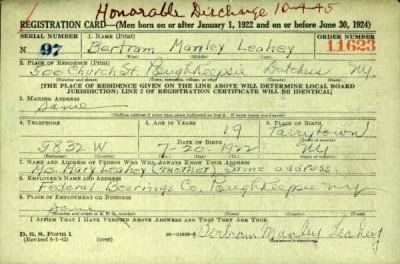 Honorable Discharge 10-4-45
REGISTRATION CARD—(Men born on or after January 1, 1922 and on or before June 30, 1924)
SERIAL NUMBER 1. NAME (Print) ORDER NUMBER
N 97 Bertram Manley Leahey 11623
(First) (Middle) (Last)
2. PLACE OF RESIDENCE (Print)
Church St. Poughkeepsie Dutchess NY.
[THE PLACE OF RESIDENCE GIVEN ON THE LINE ABOVE WILL DETERMINE LOCAL BOARD
JURISDICTION; LINE 2 OF REGISTRATION CERTIFICATE WILL BE IDENTICAL]
3. MAILING ADDRESS
Same
4. TELEPHONE 5. AGE IN YEARS 6. PLACE OF BIRTH
19 Tarrytown
DATE OF BIRTH
9832 W 7-20-1922 NY
7. NAME AND ADDRESS OF PERSON WHO WILL ALWAYS KNOW YOUR ADDRESS
Mrs. Mary Leahey (mother) Same address.
8. EMPLOYER'S NAME AND ADDRESS
Federal Bearings Co. Poughkeepsie NY
9. PLACE OF EMPLOYMENT OR BUSINESS
Same
I AFFIRM THAT I HAVE VERIFIED ABOVE ANSWERS AND THAT THEY ARE TRUE.
D. S. S. Form 1
(Revised 6-1-42) (over) Bertram Manley Leahey